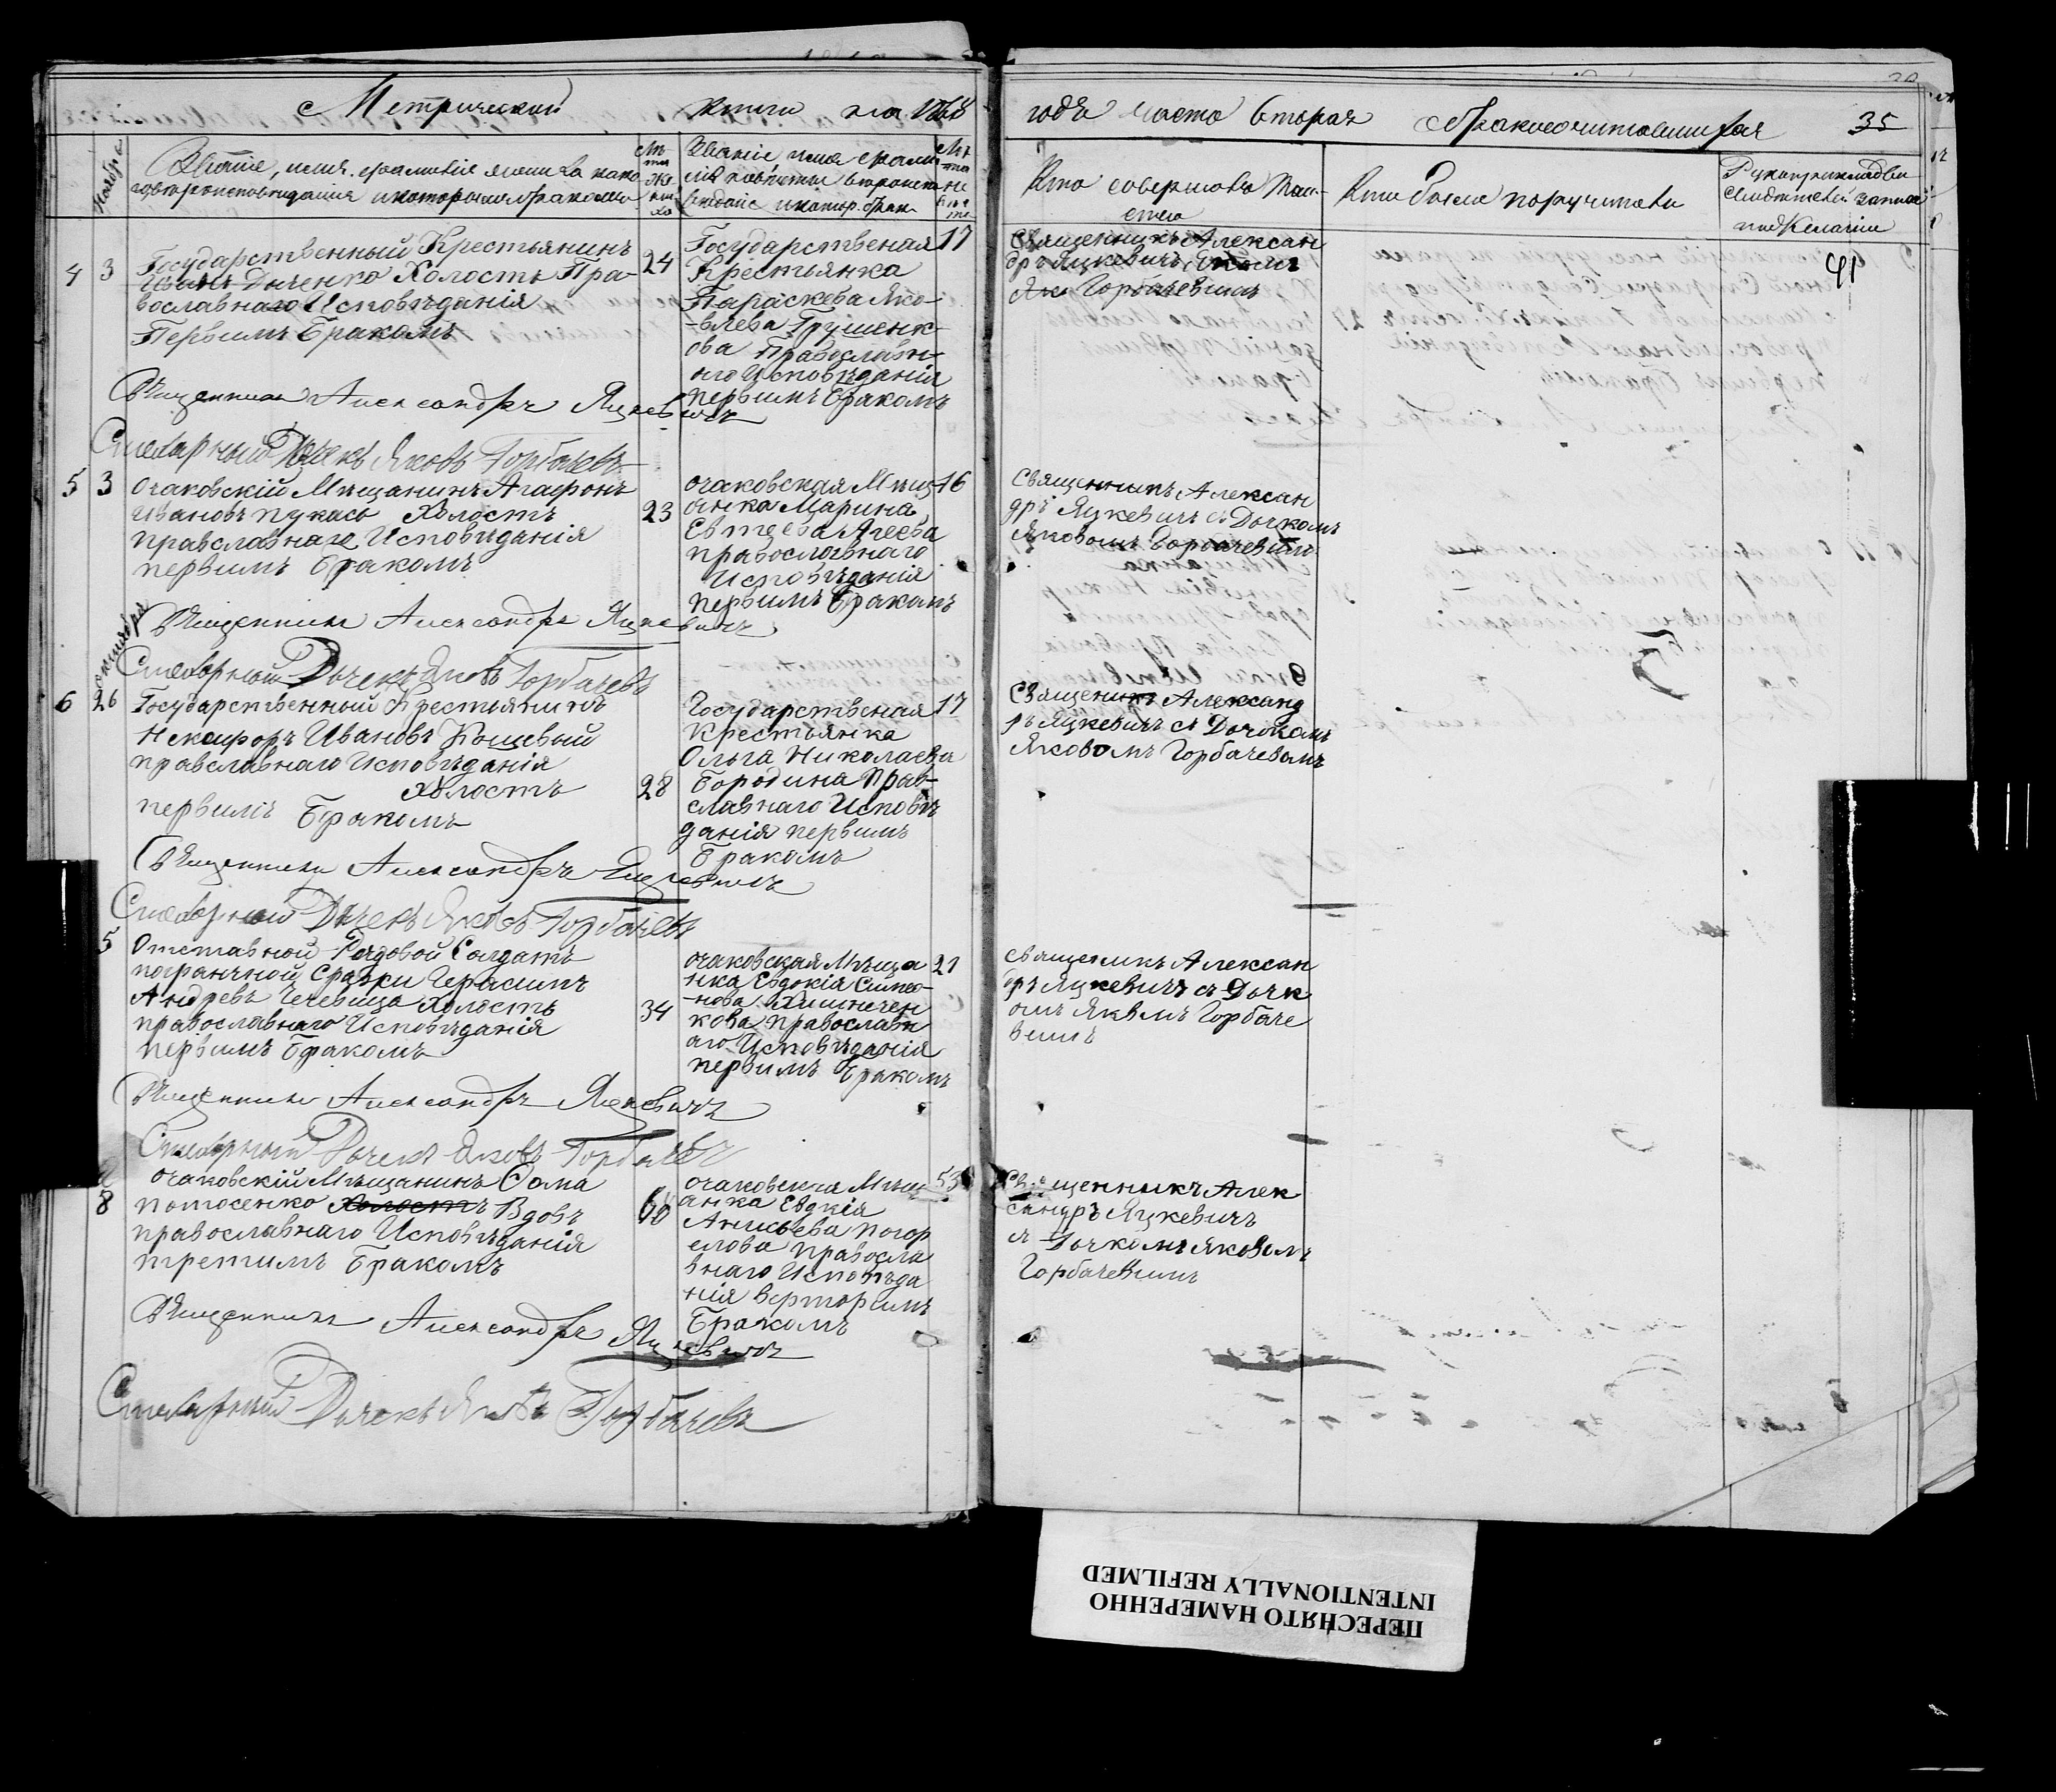 Метрической книги на 1868
годъ часть вторая о бракосочитавшихся 35
Ноября
Званіе, имя, фамиліе жениха како
говѣроисповѣданія и которымъ бракомъ
Лѣта жениха
Званіе имя фами
лія невѣсты вѣроиспо
вѣданіе и котор. брак.
Лѣта невѣсты
Кто совершалъ Таин-
ство
Кто были поручители
Рукоприкладство
свидѣтелей записи
по желанію
4 3
Государственный Крестьянинъ
Дяченко Холостъ Пра-
вославнаго Исповѣданія
Первымъ Бракомъ
24
Государственая
Крестьянка
Параскева Яко-
-влева Грушенк-
ова Православн-
аго Исповѣданія
первымъ Бракомъ
17
Священникъ Алексан
дръ Яцкевичъ
Горбачевымъ
41
Священникъ Александръ Яцкевичъ
Дячекъ Яковъ Горбачевъ
5 3
очаковскій Мѣщанинъ Агафонъ
Ивановъ Холостъ
правславнаго Исповѣданія
первымъ Бракомъ
23
очаковская Мѣщ
анка Марина
Агеева
православнаго
Исповѣданія
первымъ Бракомъ
16
Священникъ Алексан
дръ Яцкевичъ съ Дячкомъ
Яковомъ Горбачевымъ
Священникъ Александръ Яцкевичъ
Дячекъ Яковъ Горбачевъ
6 26
Государственный Крестьянинъ
Некифоръ Ивановъ Кощевый
правславнаго Исповѣданія
Холостъ
первымъ Бракомъ
28
Государствсная
Крестьянка
Ольга Николаева
Бородина прав-
славнаго Исповѣ
данія первымъ
Бракомъ
17
Священикъ Александ
ръ Яцкевичъ съ Дячкомъ
Яковомъ Горбачевамъ
Священникъ Александръ Яцкевичъ
Дячекъ Яковъ Горбачевъ
5
Отставной Рядовой Солдатъ
Герасимъ
Андревъ Чечевица Холостъ
православнаго Исповѣданія
первымъ Бракомъ
34
очаковская Мѣща
нка Евдокія Симео-
-нова
кова православн
аго Исповѣданія
первымъ Бракомъ
21
священикъ Алексан
дръ Яцкевичъ съ Дячк
омъ Горбаче
вымъ
Священникъ Александръ Яцкевичъ
Дячекъ Яковъ Горбачевъ
8
очаковскій Мѣщанинъ Фома
Потосенко Холостъ Вдовъ
православнаго Исповѣданія
третимъ Бракомъ
очаковская Мѣщ
анка Евдкія
Анисьева Погор
елова правосла
внаго Исповѣда
нія вертормъ
Бракомъ
Священникъ Алек
сандръ Яцкевичъ
съ Дячкомъ Яковомъ
Горбачевымъ
Священникъ Александръ Яцкевичъ
Дячекъ Яковъ Горбачевъ
ПЕРЕСНЯТО НАМЕРЕННО
INTENTIONALLY REFILMED